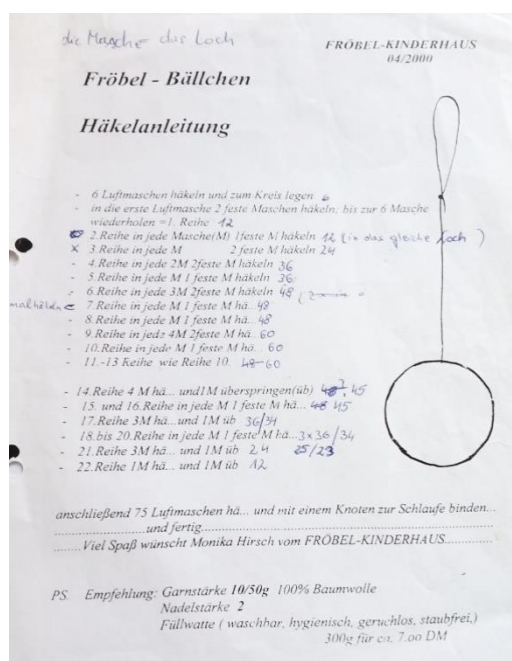 die Masche das Loch
FRÖBEL-KINDERHAUS
04/2000
Fröbel - Bällchen
Häkelanleitung
- 6 Luftmaschen häkeln und zum Kreis legen 6
- in die erste Luftmasche 2 feste Maschen häkeln; bis zur 6 Masche
wiederholen =1. Reihe 12
2.Reihe in jede Masche(M) 1feste M häkeln 12 (in das gleiche Loch )
x 3.Reihe in jede M 2 feste M häkeln 24
- 4.Reihe in jede 2M 2feste M häkeln 36
- 5.Reihe in jede M 1 feste M häkeln 36
- 6.Reihe in jede 3M 2feste M häkeln 48
7.Reihe in jede M 1 feste M hä.. 48
- 8.Reihe in jede M 1 feste M hä... 48
- 9.Reihe in jede 4M 2feste M hä.. 60
- 10.Reihe in jede M 1 feste M hä... 60
- 11.-13 Reihe wie Reihe 10. 48-60
- 14.Reihe 4 M hä... und1M überspringen(üb) 48? 45
- 15. und 16.Reihe in jede M 1 feste M hä... 48 45
- 17.Reihe 3M hä...und 1M üb 36/34
- 18.bis 20.Reihe in jede M 1 feste M hä...3x36/34
- 21.Reihe 3M hä... und 1M üb 24 25/23
- 22.Reihe 1M hä... und 1M üb 12
anschließend 75 Luftmaschen hä... und mit einem Knoten zur Schlaufe binden...
und fertig
Viel Spaß wünscht Monika Hirsch vom FRÖBEL-KINDERHAUS
PS. Empfehlung: Garnstärke 10/50g 100% Baumwolle
Nadelstärke 2
Füllwatte ( waschbar, hygienisch, geruchlos, staubfrei,)
300g für ca. 7.oo DM